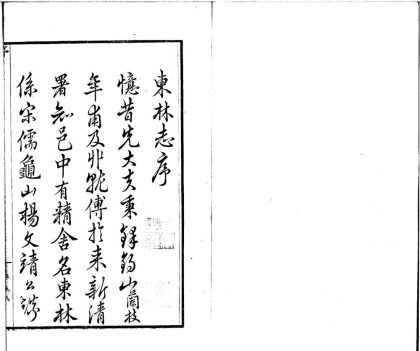 東林志序
憶昔先大夫秉鐸錫山蘭枝
年甫及丱就傅於來新清
署知邑中有精舍名東林
係宋儒龜山楊文靖公